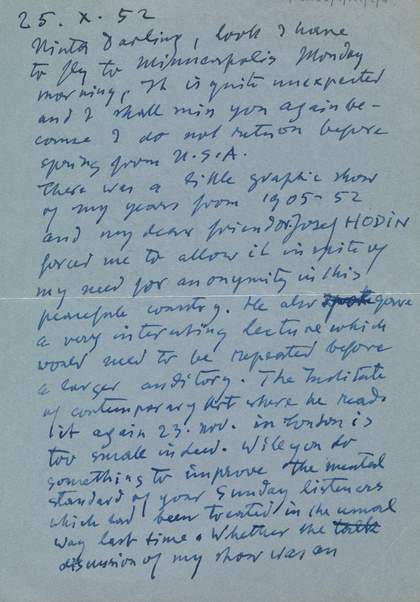 25. X. 52
Ninta Darling, look I have
to fly to Minneapolis Monday
morning, It is quite unexpected
and I shall miss you again be-
cause I do not return before
spring from U.S.A.
There was a little graphic show
of my years from 1905-52
and my dear friend Dr. Josef HODIN
forced me to allow it in spite of
my need for anonymity in this
peaceful country. He also gave
a very interesting lecture which
would need to be repeated before
a larger auditory. The Institute
of contemporary Art where he reads
it again 23. nov. in London is
too small indeed. Will you do
something to improve the mental
standard of your Sunday listeners
which had been treated in the usual
way last time. Whether the talk
discussion of my show was an